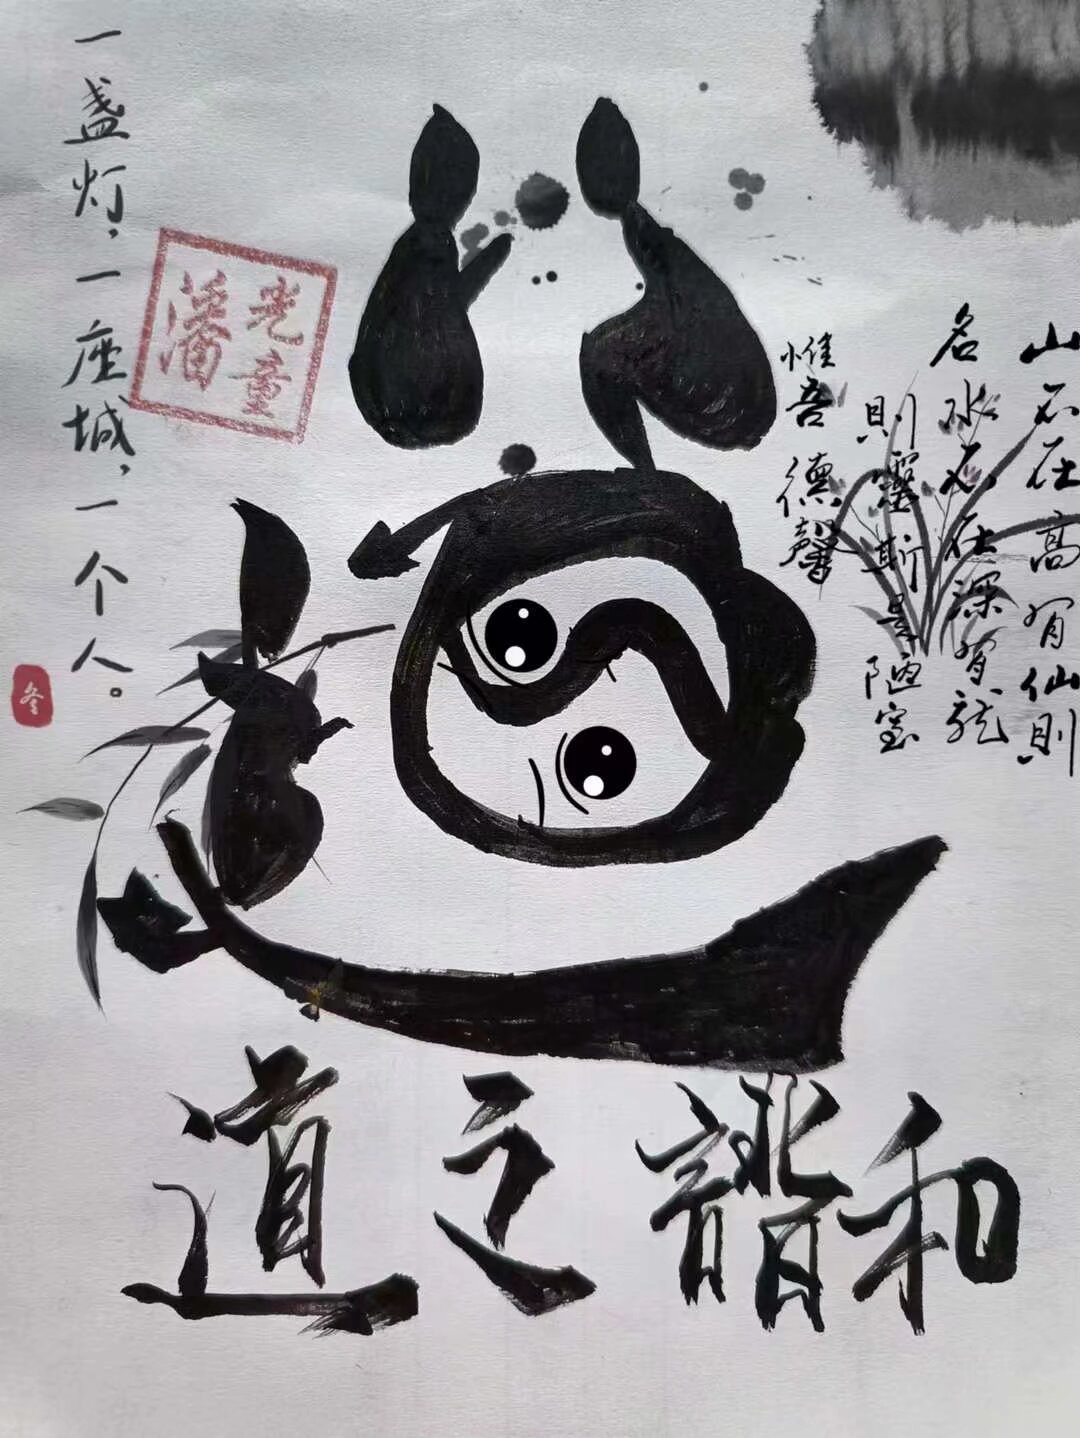 山不在高有仙則
名水不在深有龍
則靈斯是陋室
惟吾德馨
一盏灯，一座城，一个人。
光童
藩
冬
和諧之道